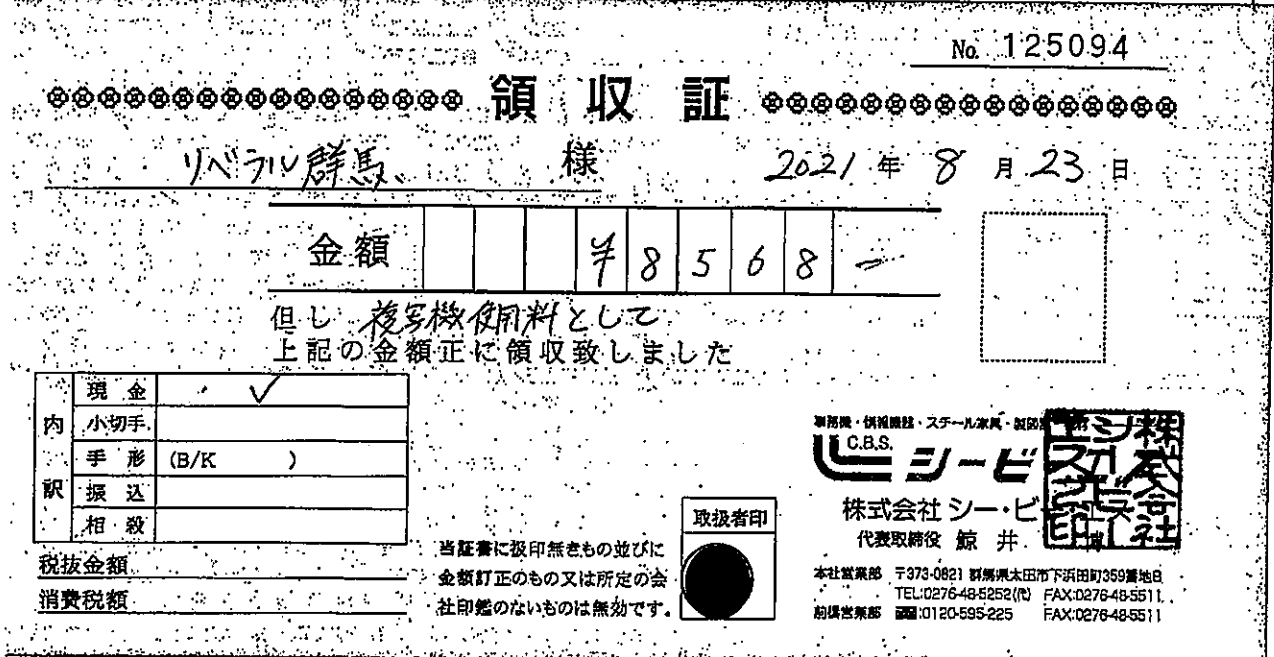 No. 125094
領収証
リベラル群馬 様
2021年8月23日
金額 ¥8568-
但し 複写機使用料として
上記の金額正に領収致しました
内訳
現金 ✓
小切手
手形 (B/K )
振込
相殺
税抜金額
消費税額
当証書に扱印無きもの並びに
金額訂正のもの又は所定の会
社印鑑のないものは無効です。
取扱者印
事務機・情報機器・スチール家具・製図
C.B.S. シービ
株式会社 シー・ビ
代表取締役 鯨井
本社営業部 〒373-0821 群馬県太田市下浜田町359番地
TEL:0276-48-5252(代) FAX:0276-48-5511
前橋営業部 :0120-595-225 FAX:0276-48-5511